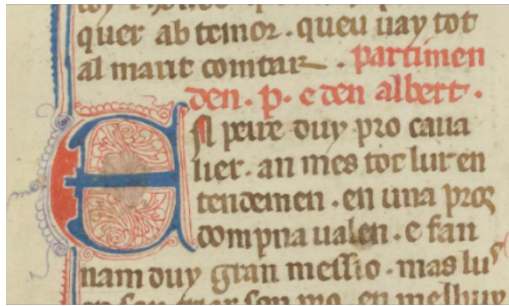 quer ab temor . queu uay tot
al marit comtar . partimen
den . p . e den albert .
En peire duy pro caua
lier . an mes tot lur en
tendemen . en una pros
dompna ualen . e fan
nam duy gran messio . mas lu